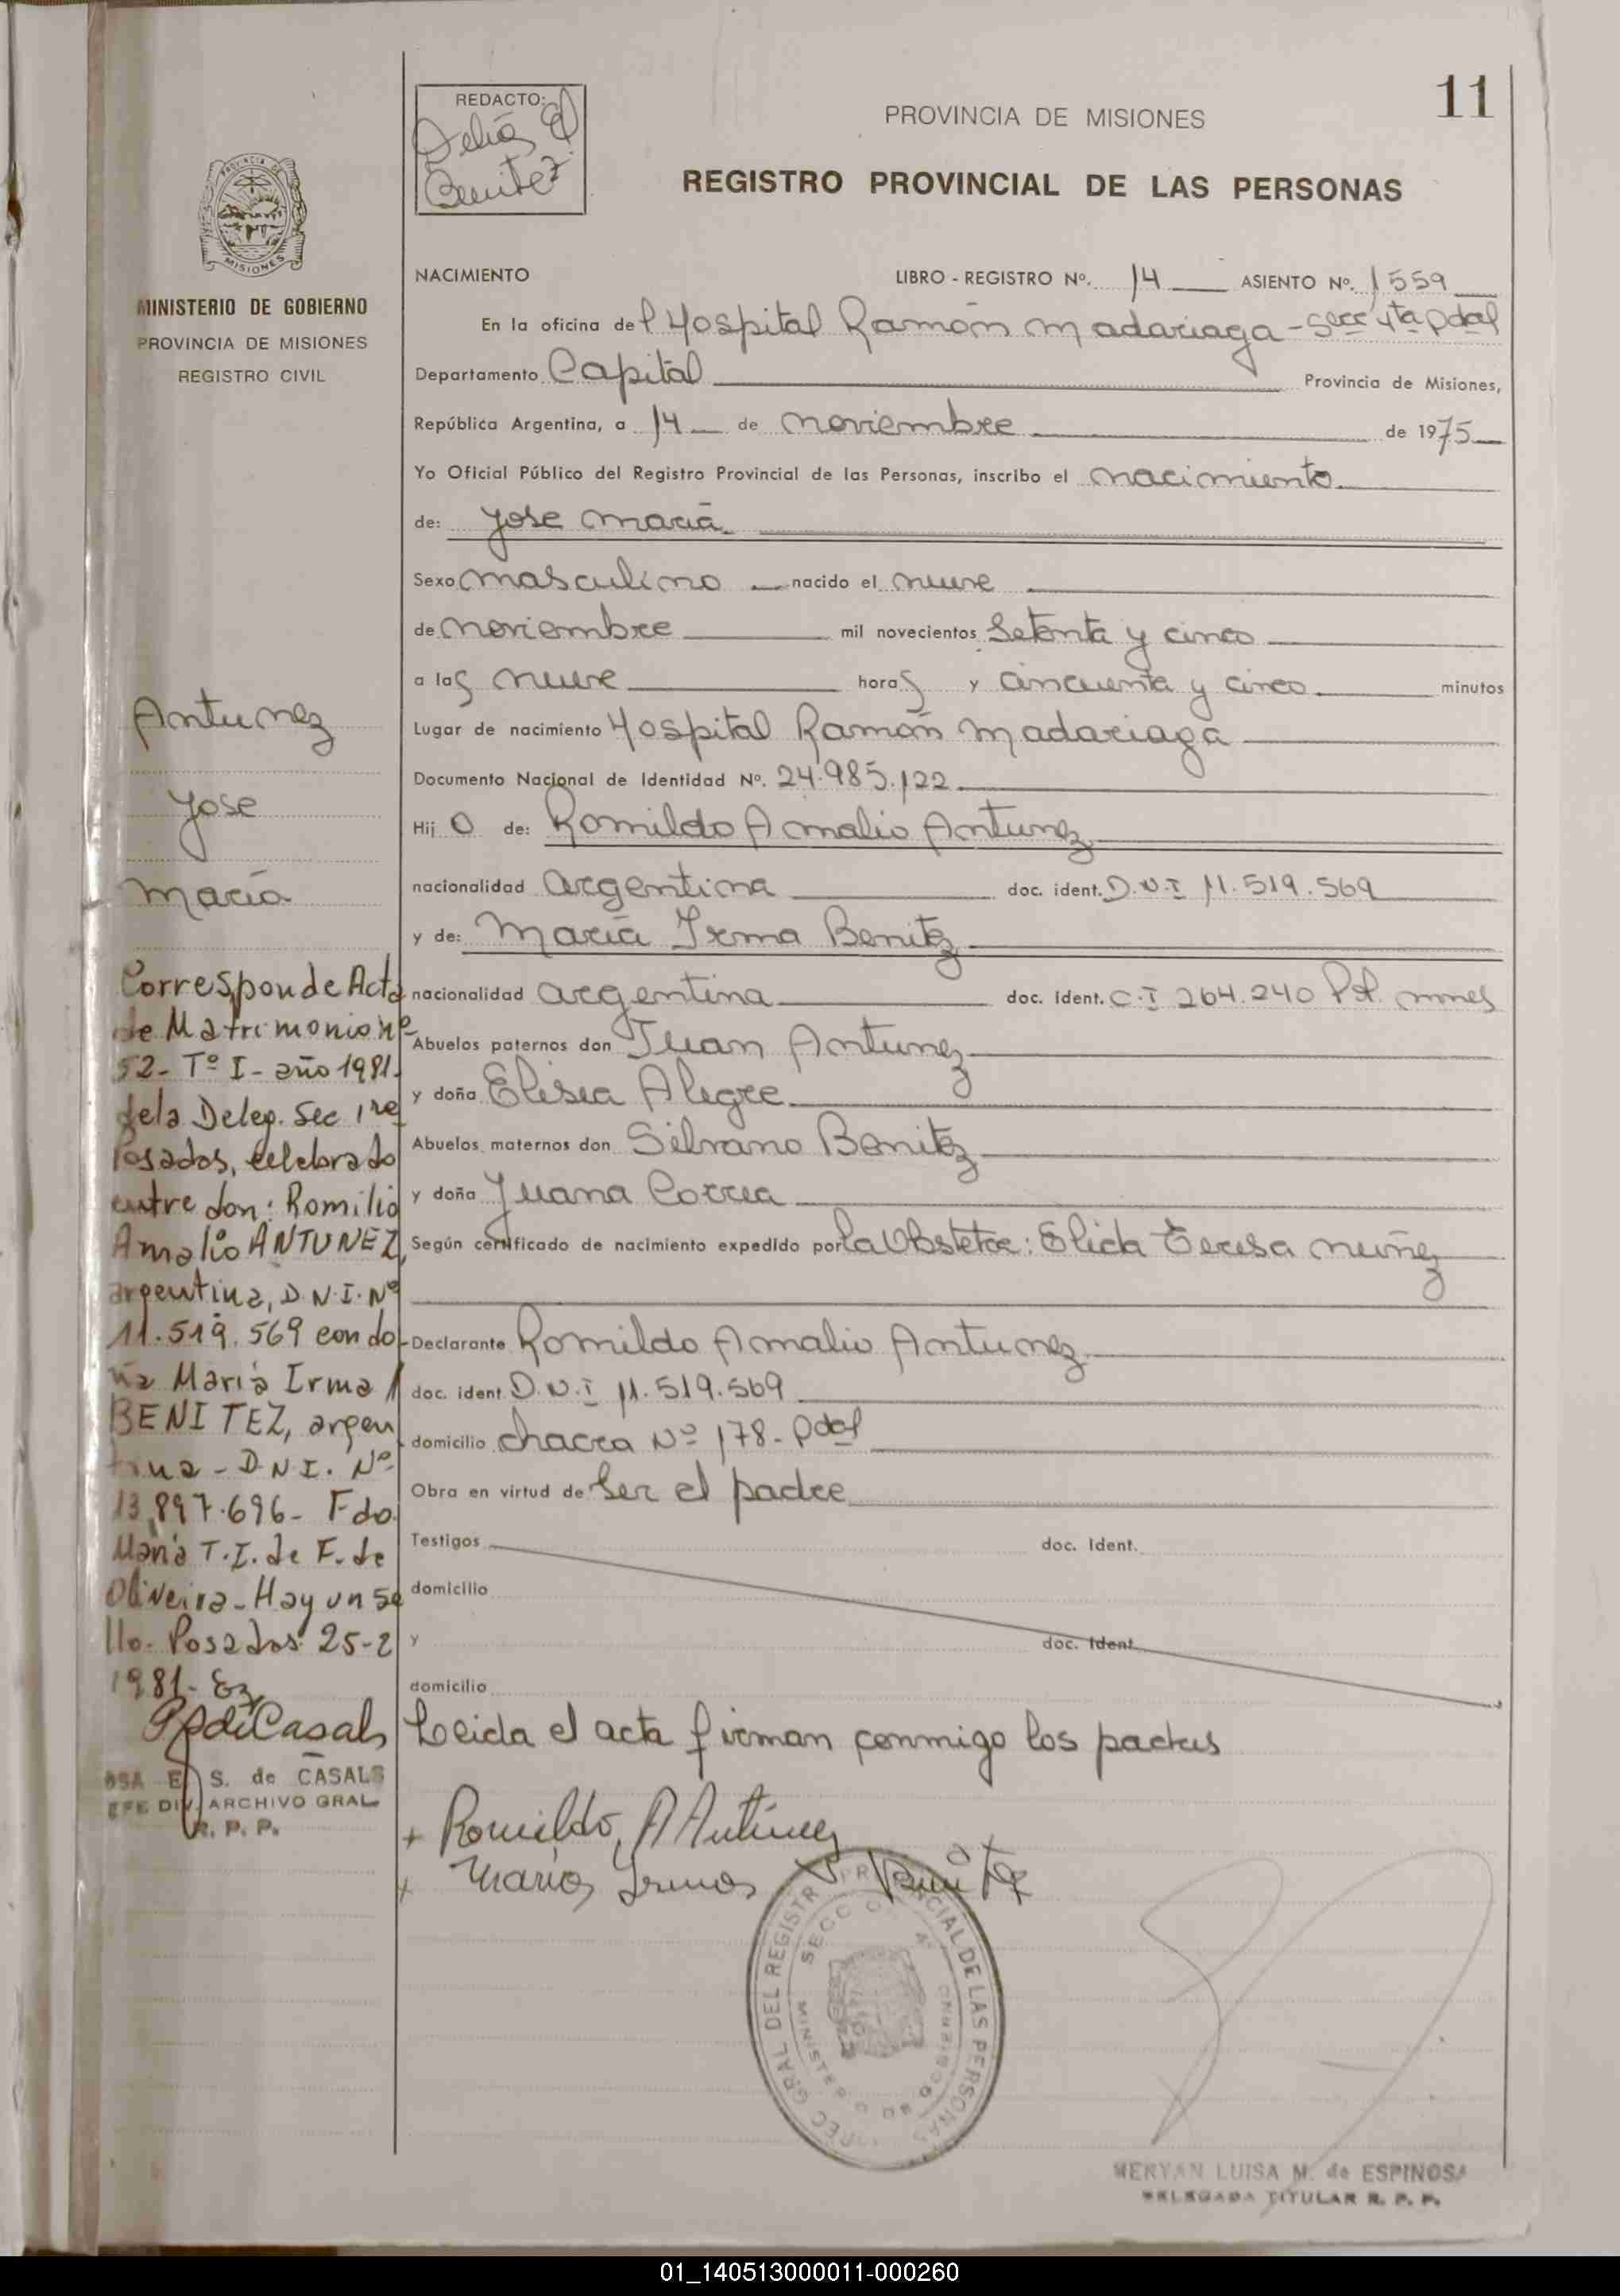 11
REDACTO:
Delia E
Benitez
PROVINCIA DE MISIONES
REGISTRO PROVINCIAL DE LAS PERSONAS
PROVINCIA DE
MISIONES
MINISTERIO DE GOBIERNO
PROVINCIA DE MISIONES
REGISTRO CIVIL
NACIMIENTO LIBRO - REGISTRO Nº. 14 ASIENTO Nº. 1559
En la oficina del Hospital Ramón Madariaga - Secc 4ta Pdas
Departamento Capital Provincia de Misiones,
República Argentina, a 14 de noviembre de 1975
Yo Oficial Público del Registro Provincial de las Personas, inscribo el nacimiento
de: Jose María
Sexo masculino nacido el nueve
de noviembre mil novecientos Setenta y cinco
a las nueve horas y cincuenta y cinco minutos
Lugar de nacimiento Hospital Ramón Madariaga
Documento Nacional de Identidad Nº. 24.985.122
Hijo de: Romildo Amalio Antunez
nacionalidad argentina doc. ident. D.N.I 11.519.569
y de: María Irma Benitez
nacionalidad argentina doc. ident. C.I 264.240 Pol. mnes
Abuelos paternos don Juan Antunez
y doña Elisea Alegre
Abuelos maternos don Silvano Benitez
y doña Juana Correa
Según certificado de nacimiento expedido por la Obstetra: Elida Teresa Nuñez
Declarante Romildo Amalio Antunez
doc. ident. D.N.I 11.519.569
domicilio chacra Nº 178 - Pdas
Obra en virtud de ser el padre
Testigos doc. Ident.
domicilio
y doc. Ident.
domicilio
Leida el acta firman conmigo los padres
+ Romildo, A Antunez
+ María Irma Benitez
Antunez
Jose
María
Corresponde Acta
de Matrimonio Nº
52- Tº I- año 1981.
de la Deleg. Sec 1ra
Posadas, celebrado
entre don: Romilio
Amalio ANTUNEZ,
argentina, D.N.I. Nº
11.519.569 con do-
ña María Irma
BENITEZ, argen
tina - D.N.I. Nº
13.897.696- Fdo.
María T.I. de F. de
Oliveira - Hay un se
llo. Posadas 25-2
1981-
OSA E. S. de CASALS
EFE DIV. ARCHIVO GRAL.
R. P. P.
GRAL DEL REGISTR PR CIAL DE LAS PERSONAS
SECC 4ª
MINISTER O DE GOBIERNO
MERYAN LUISA M. de ESPINOSA
DELEGADA TITULAR R. P. P.
01_140513000011-000260